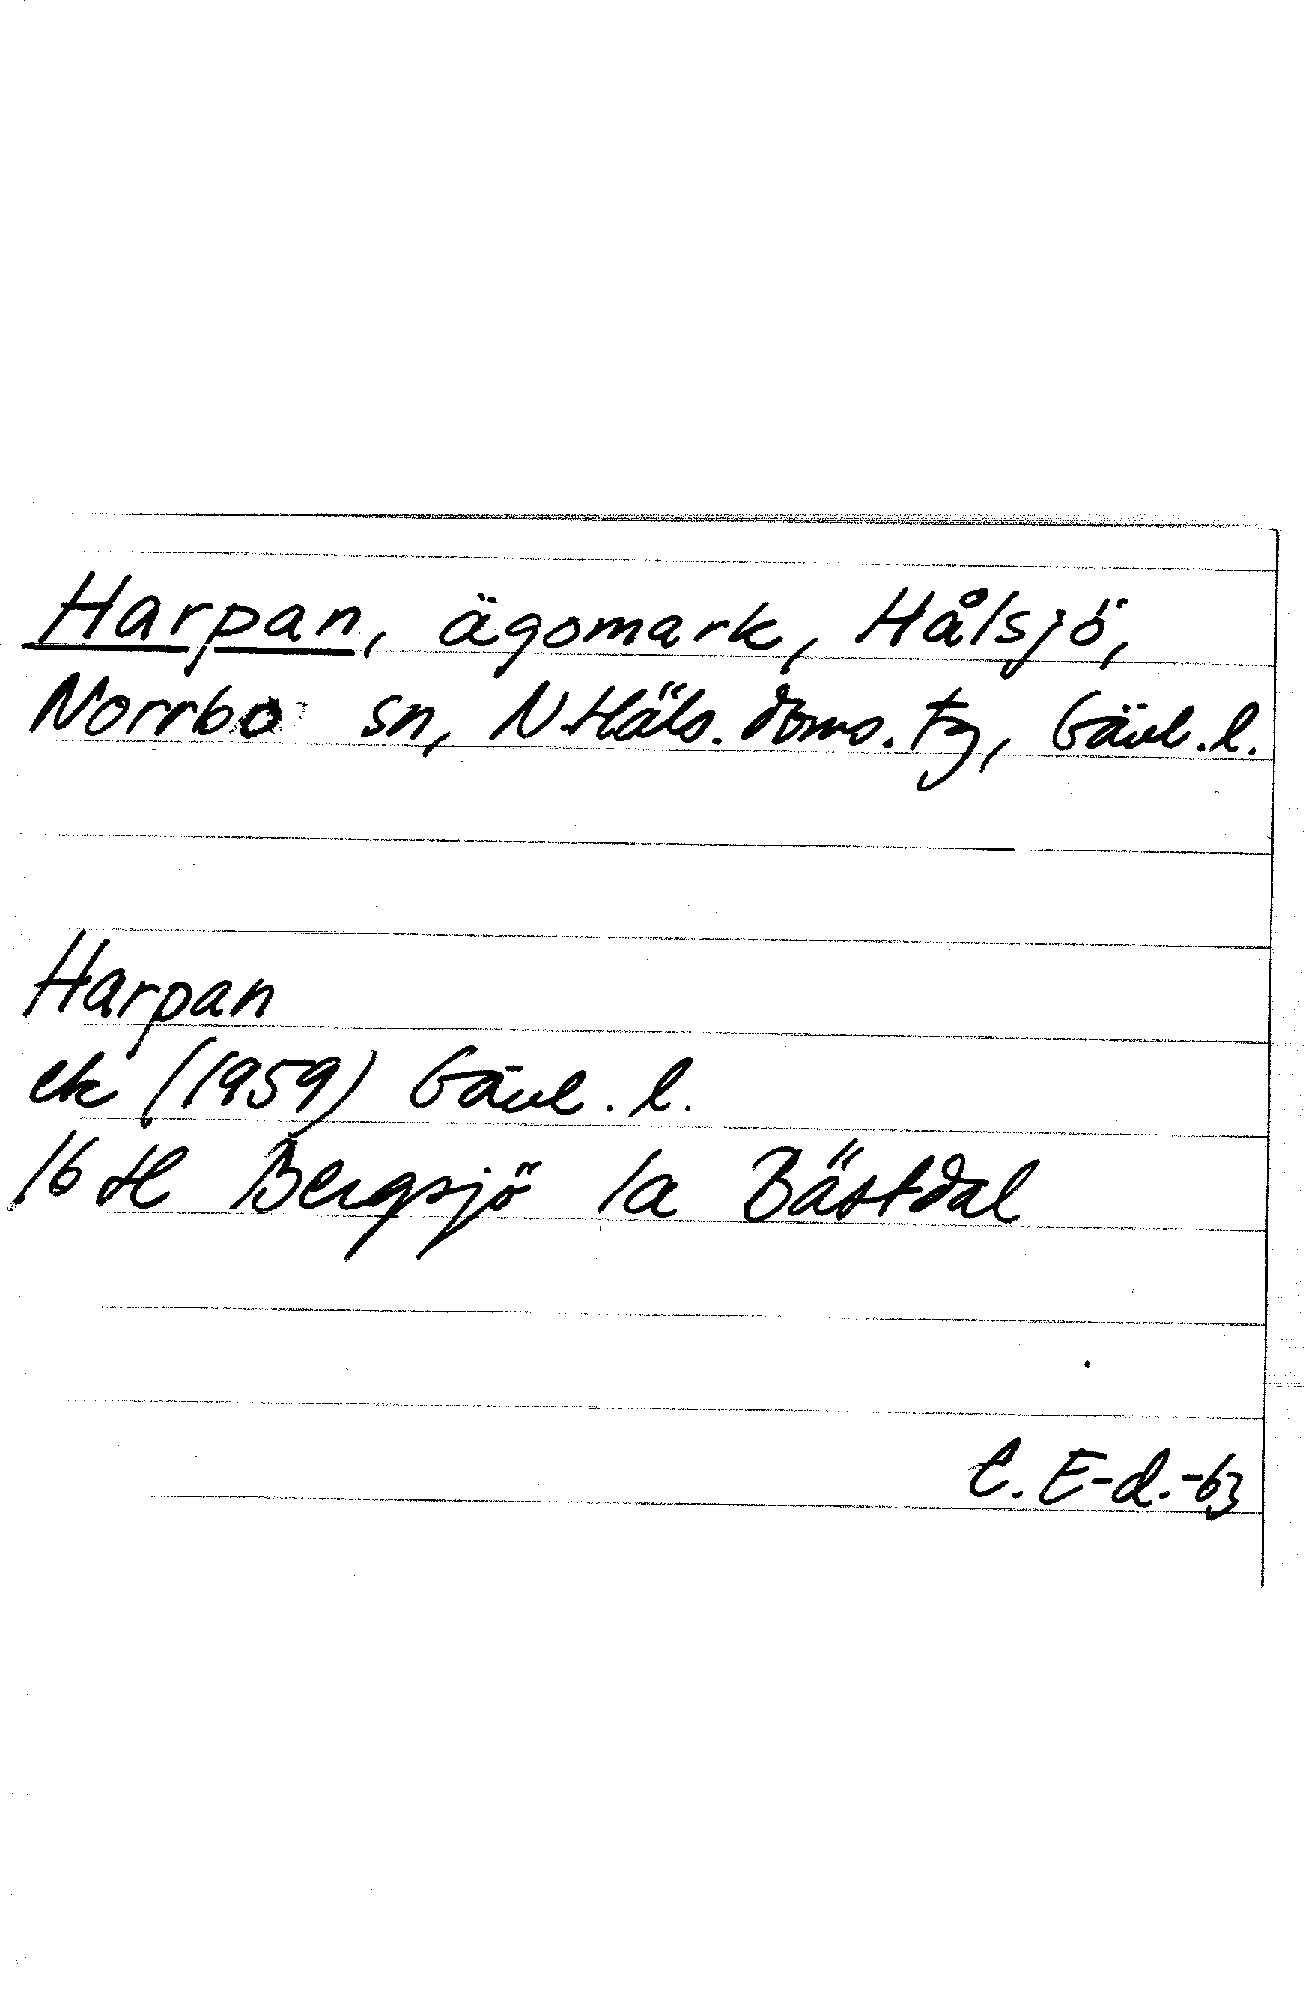 Harpan, ägomark, Hålsjö,
Norrbo sn, N.Häls. doms. tg, Gävl. l.
Harpan
ek (1959) Gävl. l.
16 H Bergsjö 1a Bästdal
C. E-d.-63